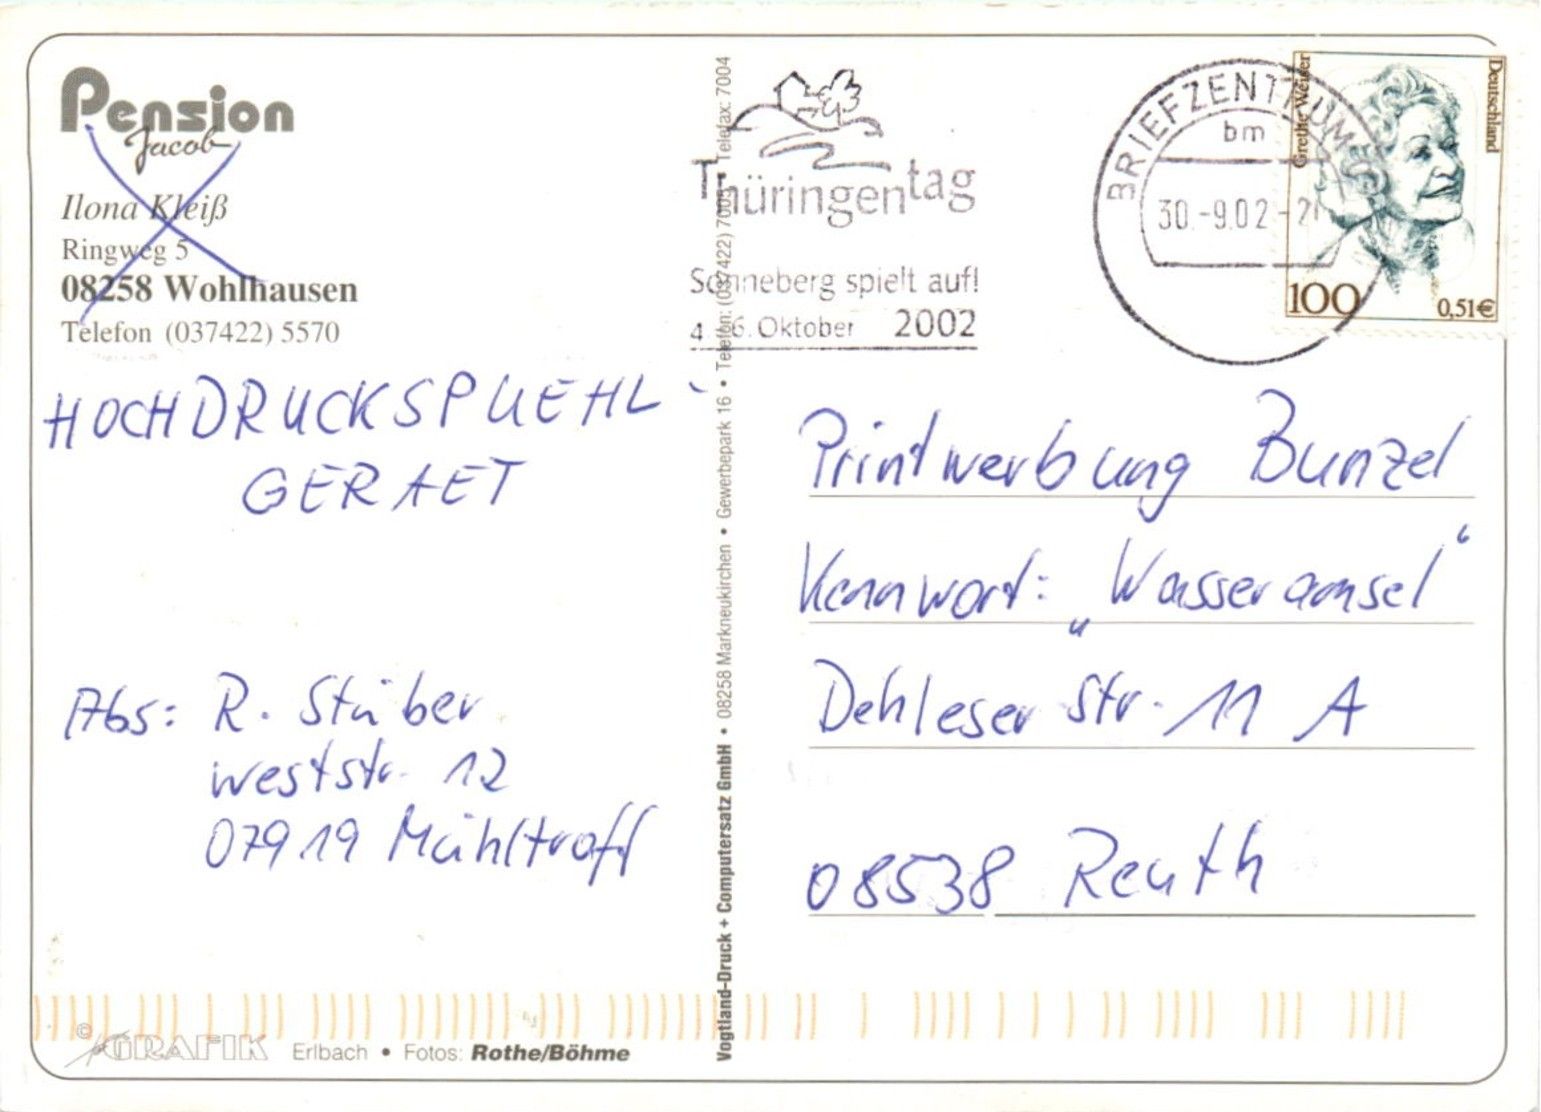 Pension
Jacob
Ilona Kleiß
Ringweg 5
08258 Wohlhausen
Telefon (037422) 5570
HOCHDRUCKSPUEHL-
GERAET
Abs: R. Stüber
Weststr. 12
07919 Mühltroff
© GRAFIK Erlbach • Fotos: Rothe/Böhme
Vogtland-Druck + Computersatz GmbH • 08258 Markneukirchen • Gewerbepark 16 • Telefon: (037422) 7003 • Telefax: 7004
Thüringentag
Sonneberg spielt auf!
4.-6. Oktober 2002
BRIEFZENTRUM
bm
30.-9.02-21
Grethe Weiser
Deutschland
100
0,51€
Printwerbung Bunzel
Kennwort: „Wasseramsel“
Dehleser Str. 11 A
08538 Reuth